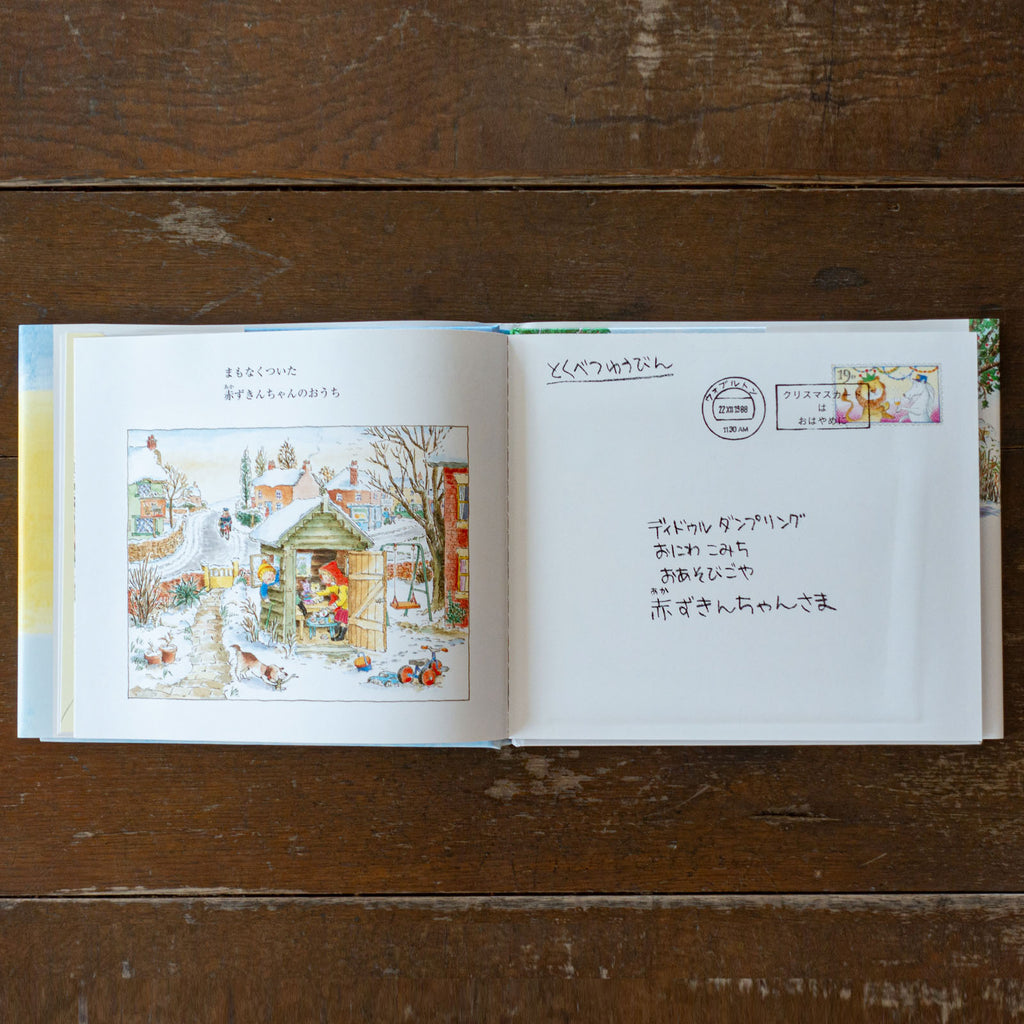 まもなくついた
あか
赤ずきんちゃんのおうち
とくべつゆうびん
22 XII 1988
11.30 AM
クリスマスカード
は
おはやめに
19
ディドゥル ダンプリング
おにわ こみち
おあそびごや
あか
赤ずきんちゃんさま